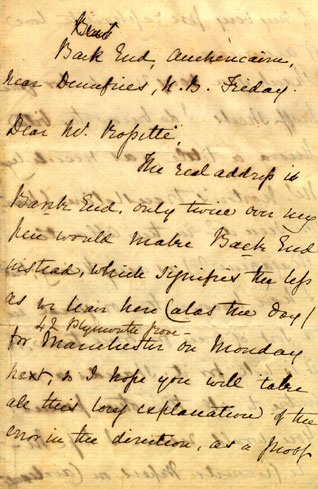 Bank
Back End, Auchencairn,
near Dumfries, N.B. Friday.
Dear Mr. Rossetti,
The real address is
Bank End, only twice over my
pen would make Back End
instead, which signifies the less
as we leave here (alas the day)
42 Plymouth Grove
for Manchester on Monday
next, so I hope you will take
all this long explanation of the
error in the direction, as a proof